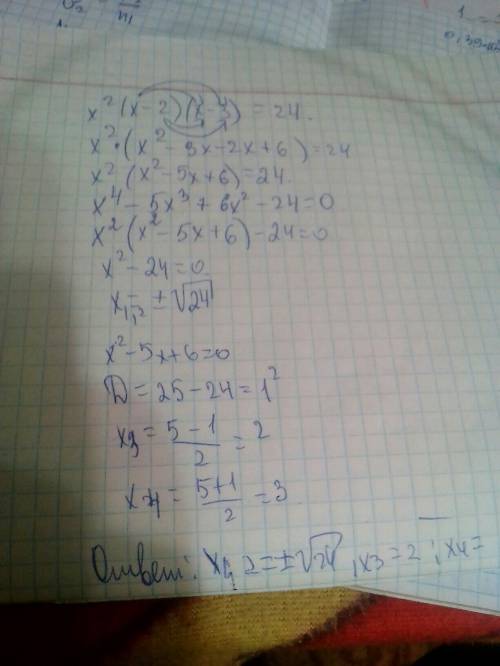 x²(x-2)(x-3) = 24.
x²·(x²-3x-2x+6)=24
x²(x²-5x+6)=24.
x⁴-5x³+6x²-24=0
x²(x²-5x+6)-24=0
x²-24=0
x₁,₂=±√24
x²-5x+6=0
D=25-24=1²
x3=(5-1)/2=2
x4=(5+1)/2=3
Ответ: x1,2=±√24, x3=2; x4=